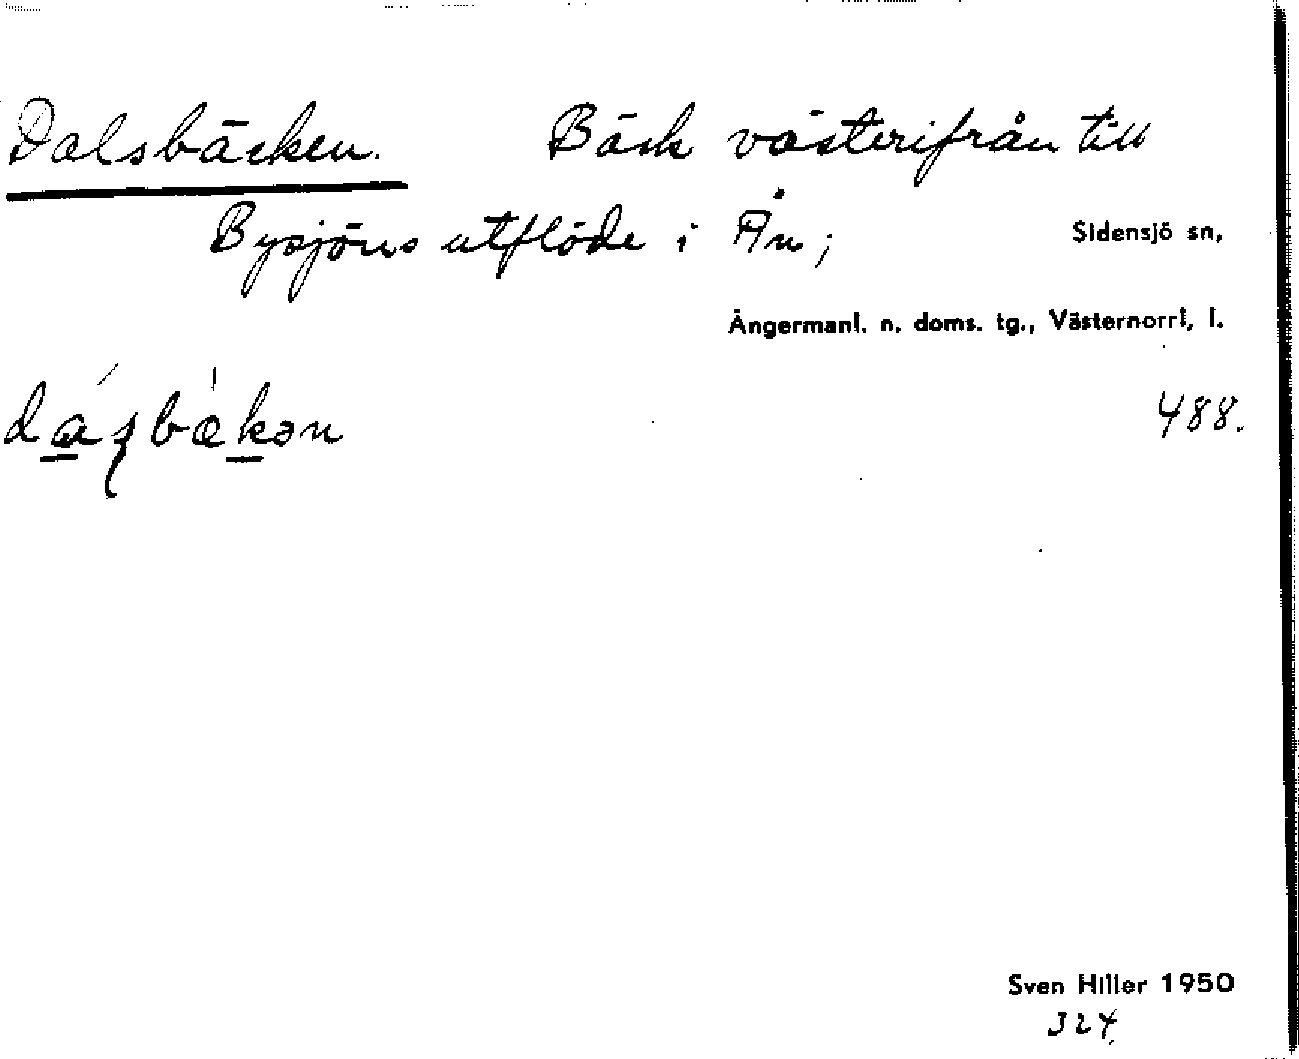 Dalsbäcken. Bäck västerifrån till
Bysjöns utflöde i Ån; Sidensjö sn,
Ångermanl. n. doms. tg., Västernorrl, l.
488.
Sven Hiller 1950
324